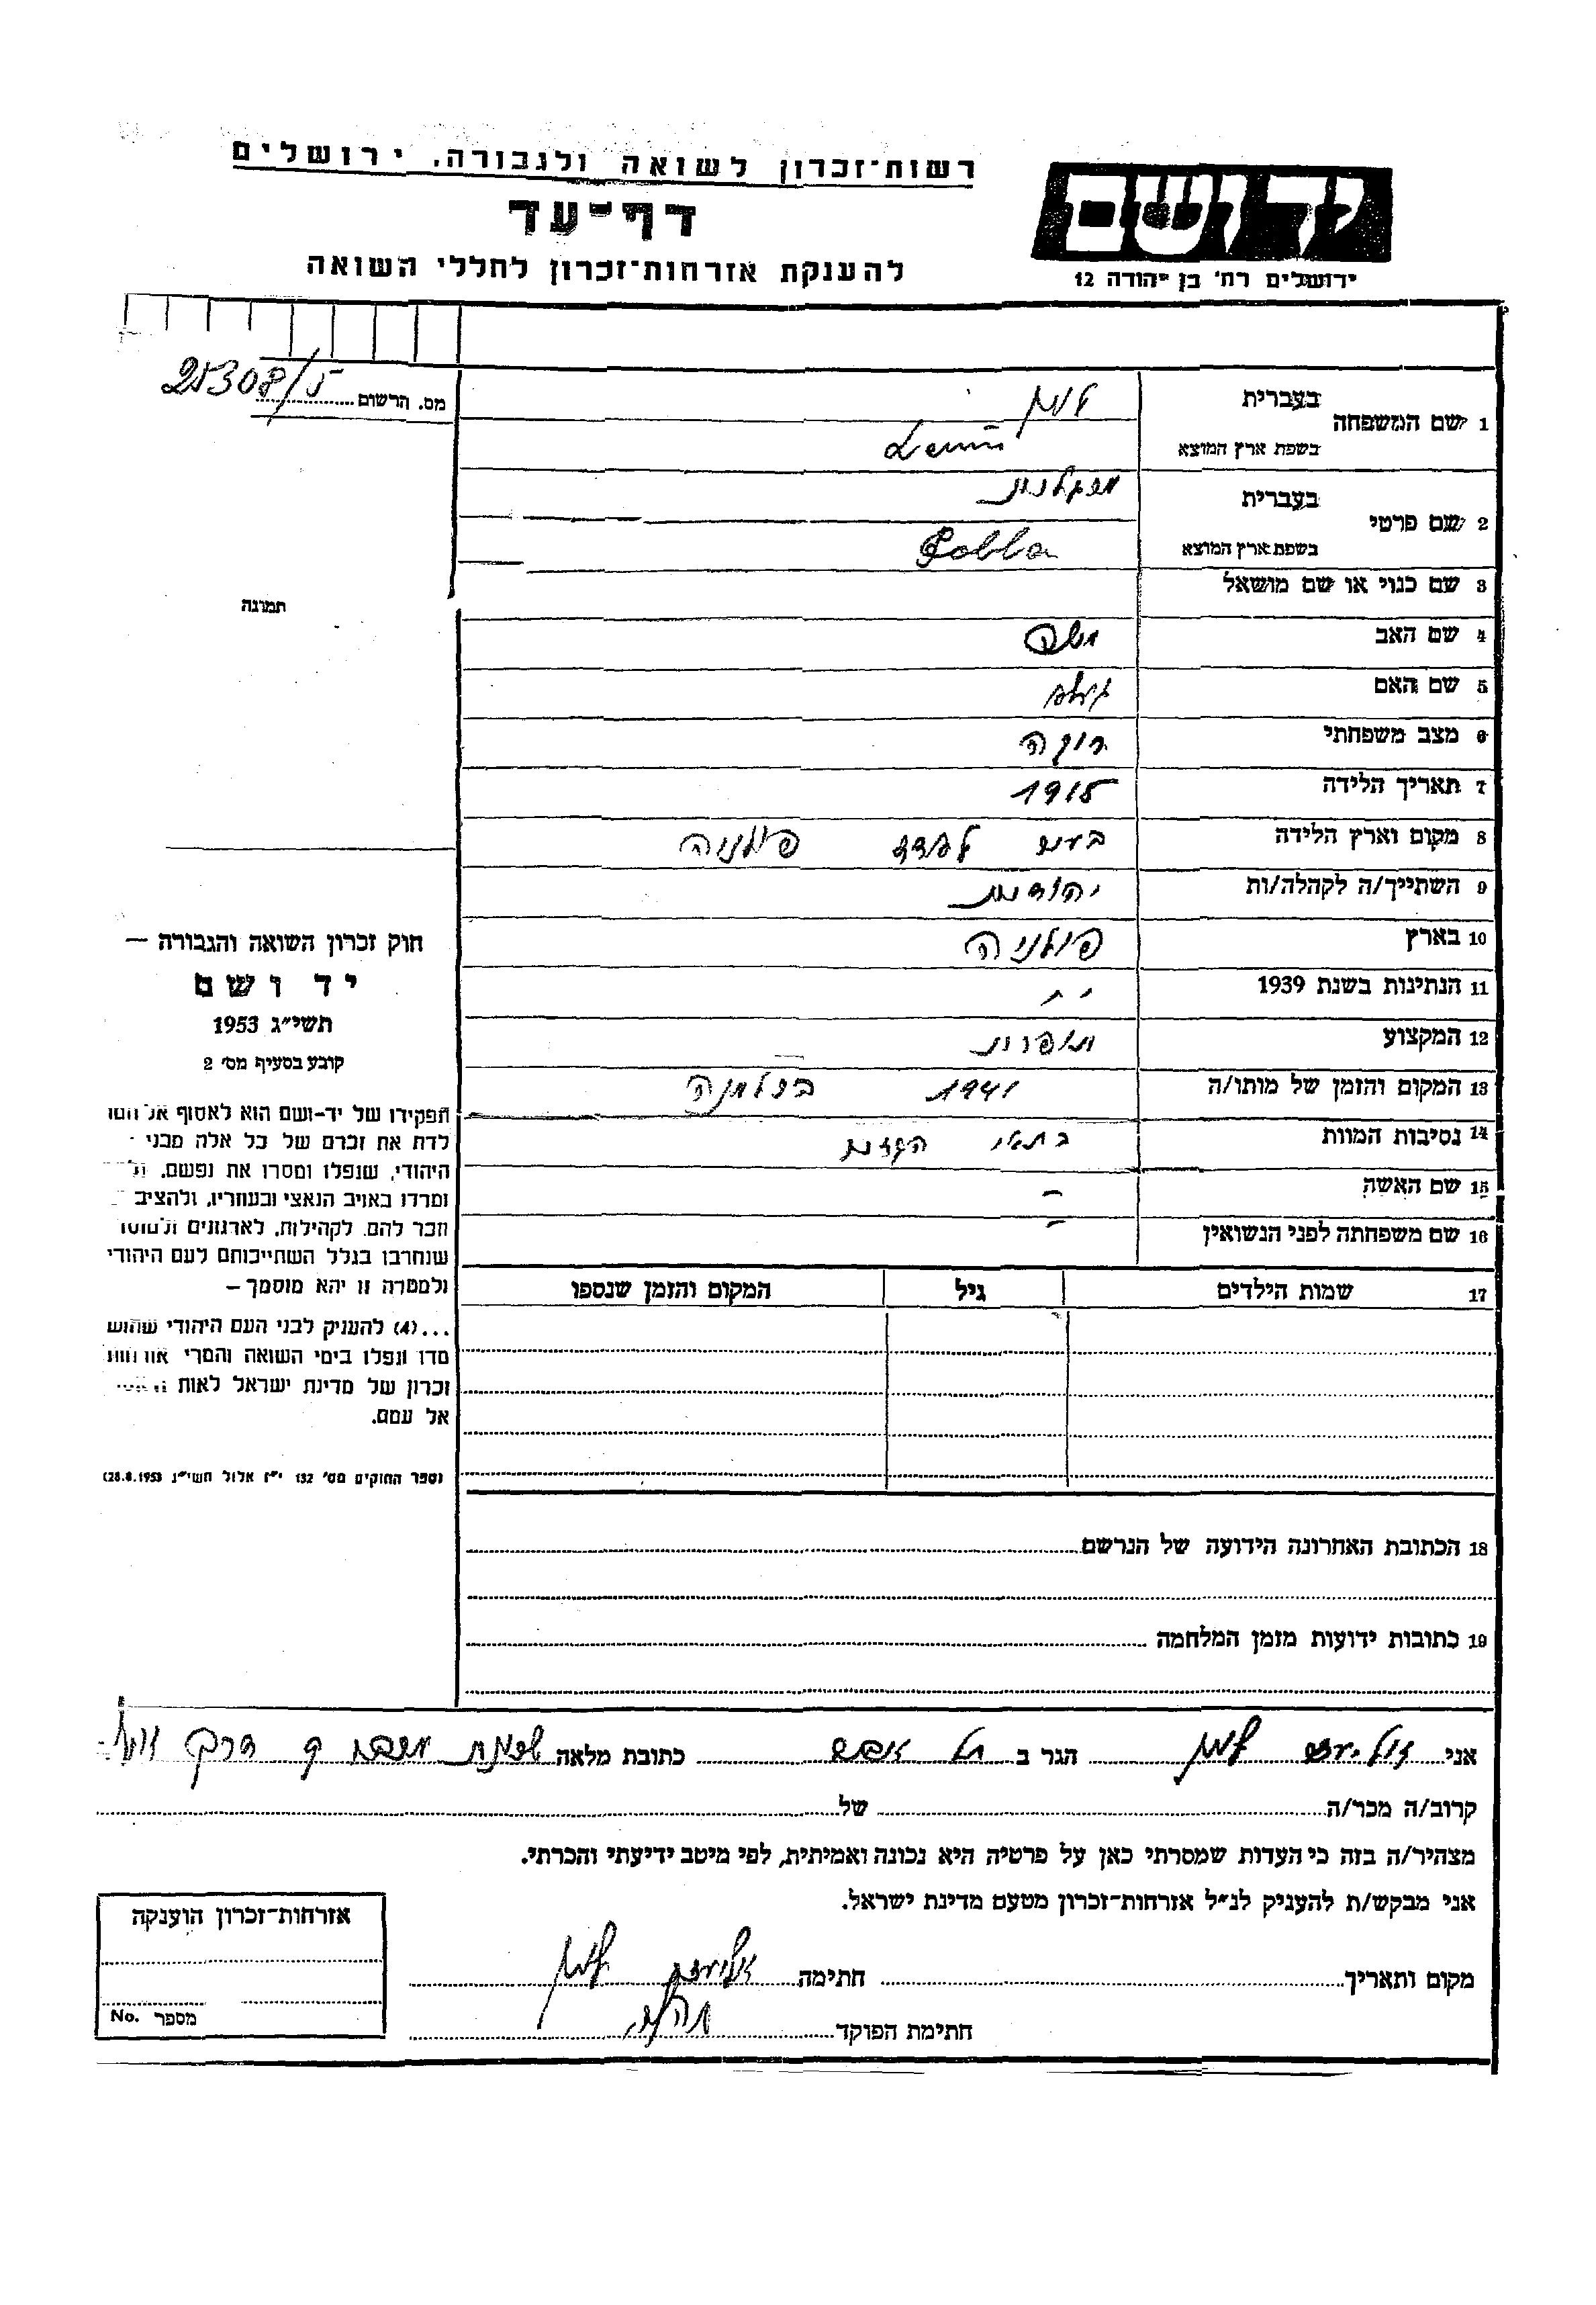 רשות־זכרון לשואה ולגבורה, ירושלים
דף־עד
להענקת אזרחות־זכרון לחללי השואה
יד ושם
ירושלים רח' בן יהודה 12
מס. הרשום 25308/5
1 שם המשפחה
בעברית
בשפת ארץ המוצא
2 שם פרטי
בעברית
בשפת ארץ המוצא
3 שם כנוי או שם מושאל
4 שם האב משה
5 שם האם
6 מצב משפחתי רוקה
7 תאריך הלידה 1915
8 מקום וארץ הלידה פולניה
9 השתייך/ה לקהלה/ות יהודית
10 בארץ פולניה
11 הנתינות בשנת 1939
12 המקצוע תופרת
13 המקום והזמן של מותו/ה 1941
14 נסיבות המוות בתאי הגזים
15 שם האשה –
16 שם משפחתה לפני הנשואין –
17 שמות הילדים גיל המקום והזמן שנספו
18 הכתובת האחרונה הידועה של הנרשם
19 כתובות ידועות מזמן המלחמה
תמונה
חוק זכרון השואה והגבורה –
יד ושם
תשי"ג 1953
קובע בסעיף מס' 2
תפקידו של יד-ושם הוא לאסוף אל
לדת את זכרם של כל אלה מבני
היהודי, שנפלו ומסרו את נפשם,
ומרדו באויב הנאצי ובעוזריו, ולהציב
וזכר להם, לקהילות, לארגונים
שנחרבו בגלל השתייכותם לעם היהודי
ולמטרה זו יהא מוסמך –
...(4) להעניק לבני העם היהודי
מדו ונפלו בימי השואה והמרי
זכרון של מדינת ישראל לאות
אל עמם.
(ספר החוקים מס' 132 י"ז אלול תשי"ג 28.8.1953)
אני הגר ב תל אביב כתובת מלאה
קרוב/ה מכר/ה של
מצהיר/ה בזה כי העדות שמסרתי כאן על פרטיה היא נכונה ואמיתית, לפי מיטב ידיעתי והכרתי.
אני מבקש/ת להעניק לנ"ל אזרחות־זכרון מטעם מדינת ישראל.
מקום ותאריך חתימה
חתימת הפוקד
אזרחות־זכרון הוענקה
מספר No.